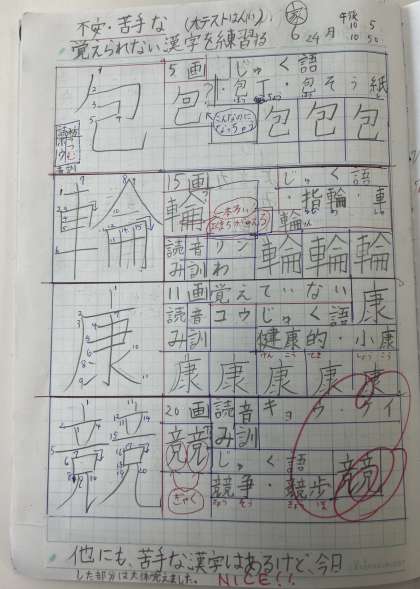 不安・苦手な(大テストはんい)、
覚えられない漢字を練習する
家
6 24 月 午後
10 5
10 50
包
5画
じゅく語
包
・包丁・包そう紙
包 包 包
音訓
輪
15画
輪
じゅく語
・指輪・車輪
読み 音訓 リン わ
輪 輪 輪
康
11画 覚えていない
康
読み 音訓 コウ じゅく語
健康的・小康
けんこうてき しょうこう
康 康 康 康 康
競
20画 読み 音訓 キョウ・ケイ
競
じゅく語
競争・競歩
きょうそう きょうほ
競
ぎゃく
他にも、苦手な漢字はあるけど、今日
した部分は大体覚えました。
NICE!!